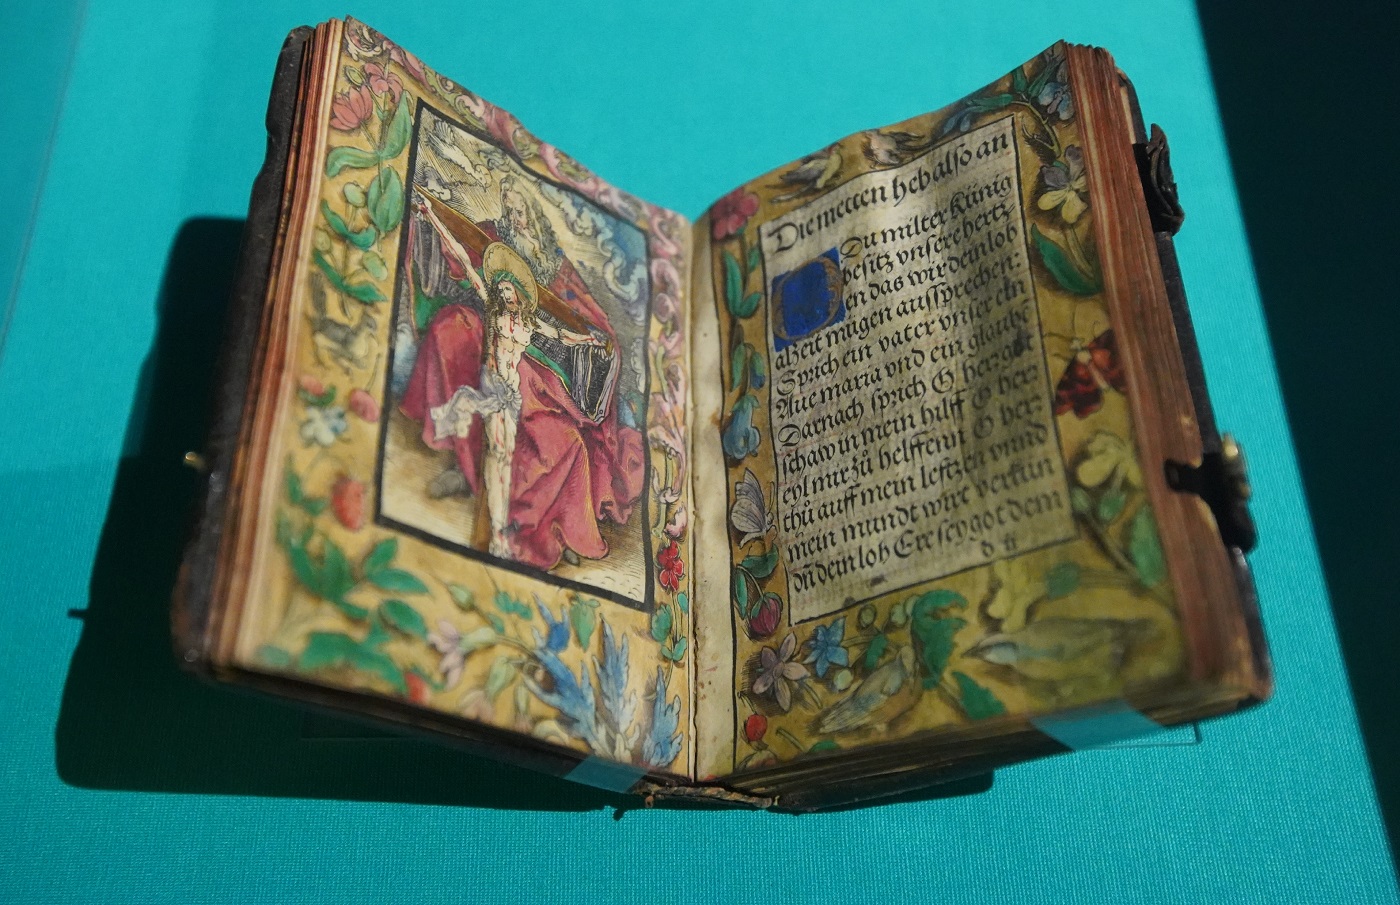 Die metten heb also an
Du milter Künig
besitz vnsere hertz
en das wir dein lob
alzeit mügen aussprechen:
Sprich ein vater vnser ein
Aue maria vnd ein glaubē
Darnach sprich G herz got
schaw in mein hilff G herz
eyl mir zů helffenn G herz
thů auff mein lefftzen vnnd
mein mundt wirt verkün
dñ dein lob Ere sey got dem